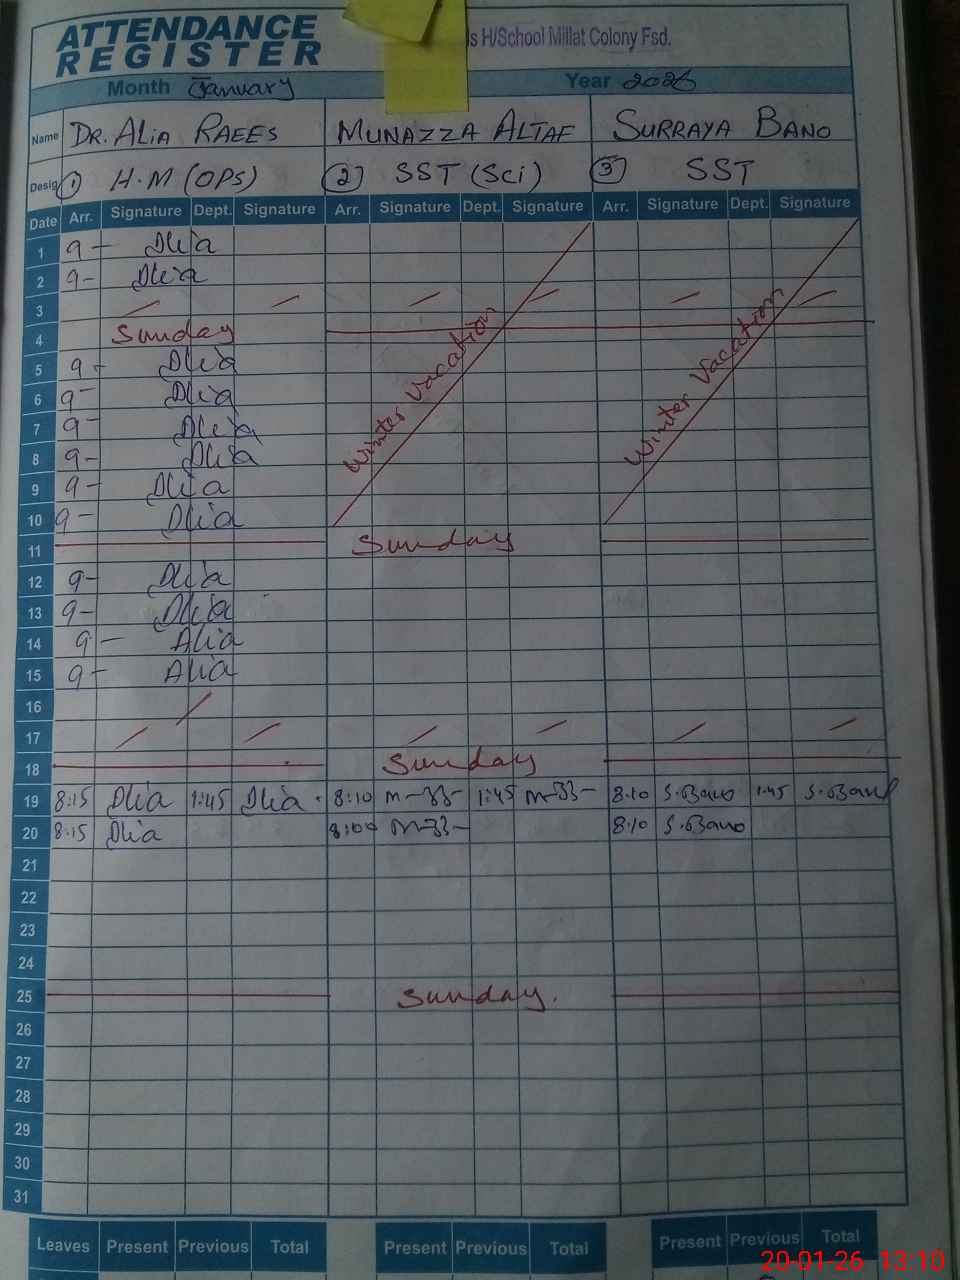 ATTENDANCE
REGISTER
s H/School Millat Colony Fsd.
Month January Year 2026
Name DR. ALIA RAEES MUNAZZA ALTAF SURRAYA BANO
Desig ① H.M (OPS) ② SST (Sci) ③ SST
Date Arr. Signature Dept. Signature Arr. Signature Dept. Signature Arr. Signature Dept. Signature
1 9- Alia
2 9- Alia
3
4 Sunday
5 9- Alia
6 9- Alia
7 9- Alia
8 9- Alia
9 9- Alia
10 9- Alia
Winter Vacation
Winter Vacation
11 Sunday
12 9- Alia
13 9- Alia
14 9- Alia
15 9- Alia
16
17
18 Sunday
19 8:15 Alia 1:45 Alia 8:10 1:45 8:10 S.Bano 1:45 S.Bano
20 8:15 Alia 8:00 8:10 S.Bano
21
22
23
24
25 Sunday.
26
27
28
29
30
31
Leaves Present Previous Total Present Previous Total Present Previous Total
20-01-26 13:10